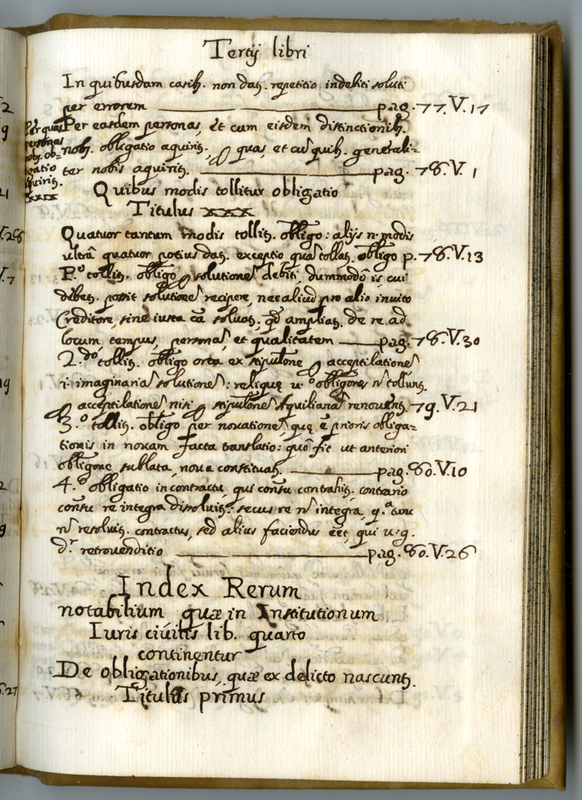 Tertij libri
In quibusdam casib. non dat. repetitio indebiti soluti
per errorem pag. 77. V. 17
Per easdem personas, et cum eisdem distinctionib.
nob. obligatio aquirit. quas, et cuiquib. generali-
ter nobis aquirit. pag. 78. V. 1
Per quas
personas
nob. ob-
gatio a
quirit.
XXIX
Quibus modis tollitur obligatio
Titulus XXX
Quatuor tantum modis tollit. obligo: alijs n. modis
ultra quatuor potius dat. exceptio qua tollat. obligo p. 78. V. 13
P.º tollit. obligo solutione debiti, dummodo is cui
debet. possit solutione recipere, nec aliud pro alio invito
Creditore sine iusta ca solvat, qd ampliat. de re ad
locum tempus, persona et qualitatem pag. 78. V. 30
2.do tollit. obligo orta ex stipulone acceptilatione
i. imaginaria solutione: reliquæ v.o obligones n tollunt.
acceptilatione nisi stipulone Aquiliana renovent. 79. V. 21
3.º tollit. obligo per novatione quæ e prioris obliga-
tionis in novam facta translatio: quo fit ut anteriori
obligone sublata nova constituat. pag. 80. V. 10
4.º obligatio in contractu, qui consu contrahit. contrario
consu re integra dissolvit: secus re n integra, q.a tunc
n resolvit. contractus, sed alius faciendus eet, qui v. g.
d.r retrovenditio pag. 80. V. 26
Index Rerum
notabilium quæ in Institutionum
Iuris civilis lib. quarto
continentur
De obligationibus quæ ex delicto nascunt.
Titulus primus